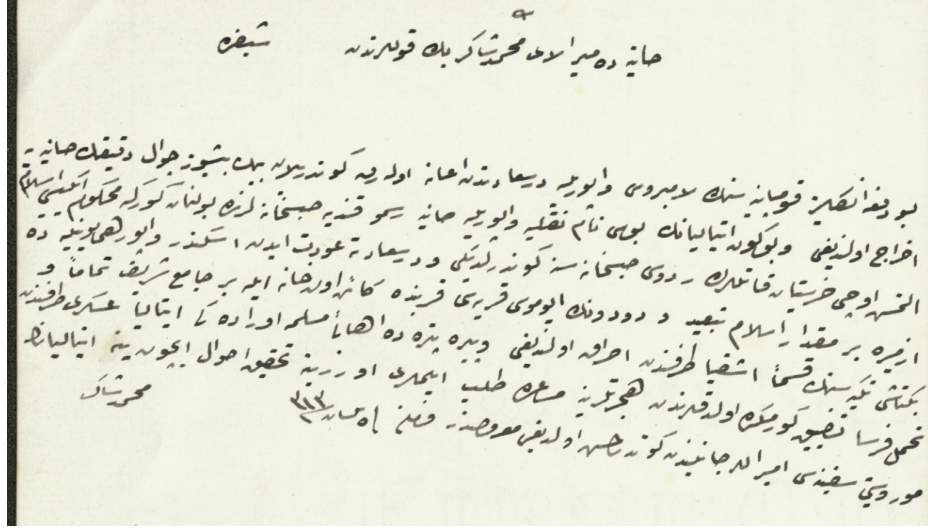 حانیه ده میر الای محمد شاکر بك قوللرندن شیفره
بو دفعه انكلیز قومپانیه سنك لامبروس واپوریله درسعادتدن اعانه اوله رق كوندریلان بیك بشیوز چوال دقیقك حانیه یه
اخراج اولندیغی و بوكون ایتالیانك نام نقلیه واپوریله حانیه رسمو قندیه حبسخانه لرنده بولنان كورك محكومی اسلام
التمش اوچی خرستیان قاتللرك ردوس حبسخانه سنه كوندرلدیكی و درسعادته عودت ایدن اسكندر واپور همایونیله ده
ازمیره بر مقدار اسلام تبعید و قریه سی قربنده كائن اون خانه ایله بر جامع شریف تماماً و
بكتاشی تكیه سنك قسماً اشقیا طرفندن احراق اولندیغی و ده اهالئ مسلمه اوراده كی ایتالیا عسكری طرفندن
تحمل فرسا تضییق كورمكده اولدقلرندن هجرتلرینه مساعده طلب ایتملری اوزرینه تحقیق احوال ایچون ینه ایتالیانك
سفینه سی امیراللر جانبندن كوندرلمش اولدیغی معروضدر فرمان نیسان ٣١٣
محمد شاكر